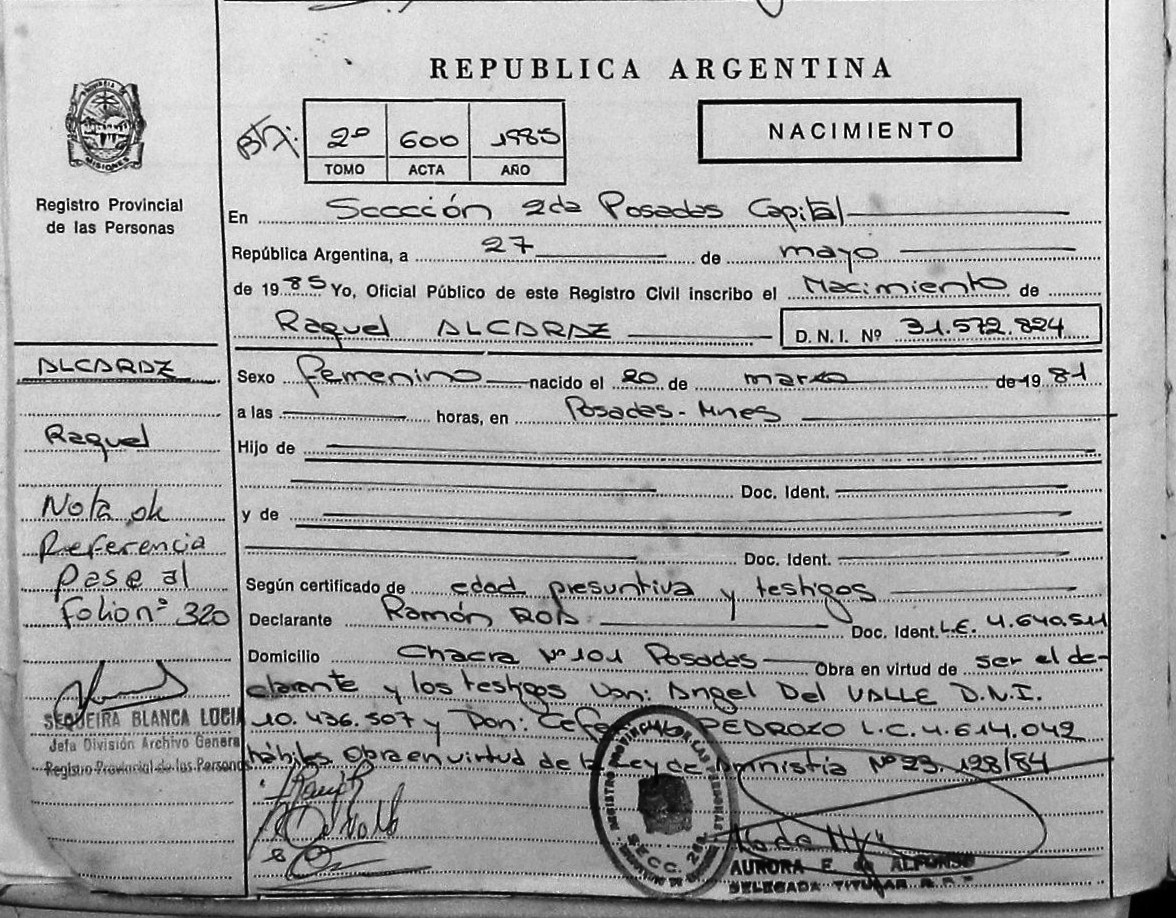 REPUBLICA ARGENTINA
NACIMIENTO
2º 600 1985
TOMO ACTA AÑO
PROVINCIA DE MISIONES
Registro Provincial
de las Personas
En Sección 2da Posadas Capital
República Argentina, a 27 de mayo
de 1985 Yo, Oficial Público de este Registro Civil inscribo el Nacimiento de
Raquel ALCARAZ D. N. I. Nº 31.572.824
Sexo femenino nacido el 20 de marzo de 1981
a las horas, en Posadas - Mnes
Hijo de
Doc. Ident.
y de
Doc. Ident.
Según certificado de edad presuntiva y testigos
Declarante Ramón Doc. Ident. L.E. 4.640.511
Domicilio Chacra Nº 101 Posadas Obra en virtud de ser el de-
clarante y los testigos Don: Angel Del VALLE D.N.I.
10.436.507 y Don: PEDROZO L.C. 4.614.042
hábiles Obra en virtud de la Ley de Amnistía Nº 23.128/84
ALCARAZ
Raquel
Nota de
Referencia
Pase al
folio nº 320
SEQUEIRA BLANCA LUCIA
Jefa División Archivo General
Registro Provincial de las Personas
REGISTRO PROVINCIAL DE LAS PERSONAS
SECC. 2da
AURORA E. de ALFONSO
DELEGADA TITULAR